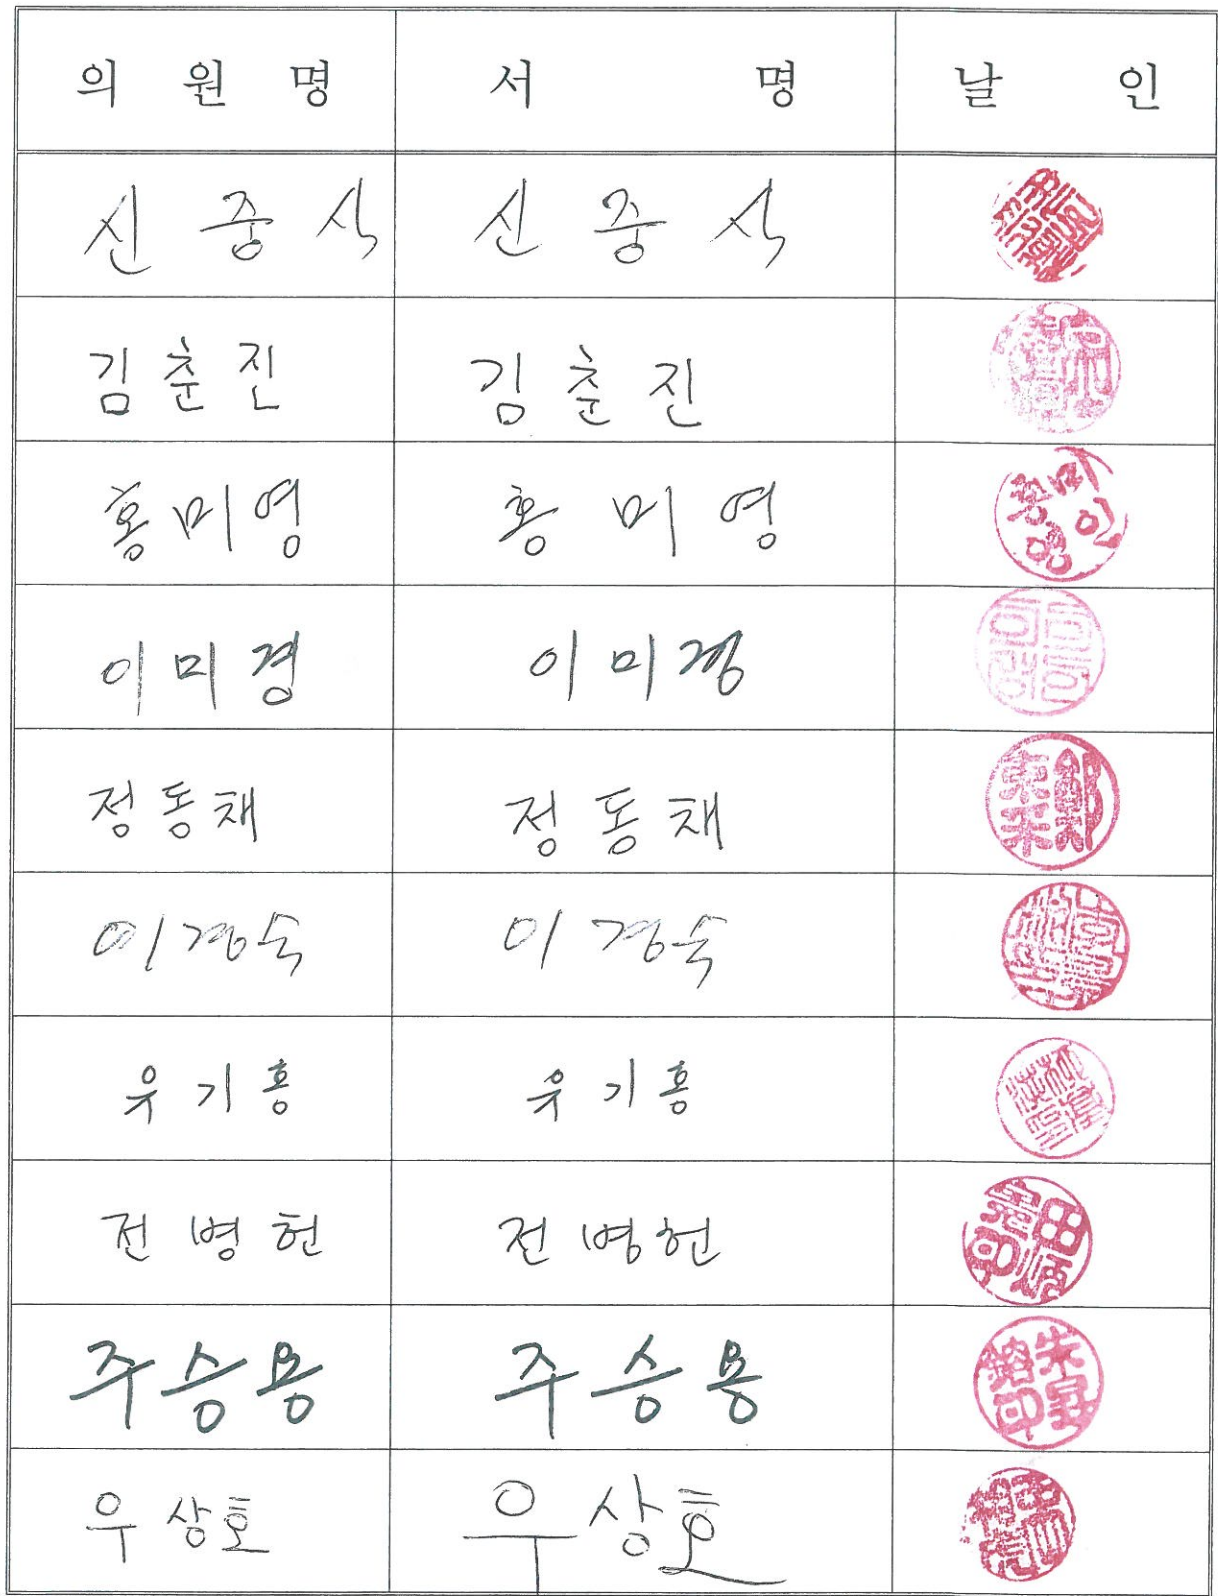 의 원 명 서 명 날 인
신 중 식 신 중 식
김 춘 진 김 춘 진
홍 미 영 홍 미 영 홍미영인
이 미 경 이 미 경
정 동 채 정 동 채 鄭東采
이 경 숙 이 경 숙
유 기 홍 유 기 홍
전 병 헌 전 병 헌
주 승 용 주 승 용 朱昇鎔印
우 상 호 우 상 호